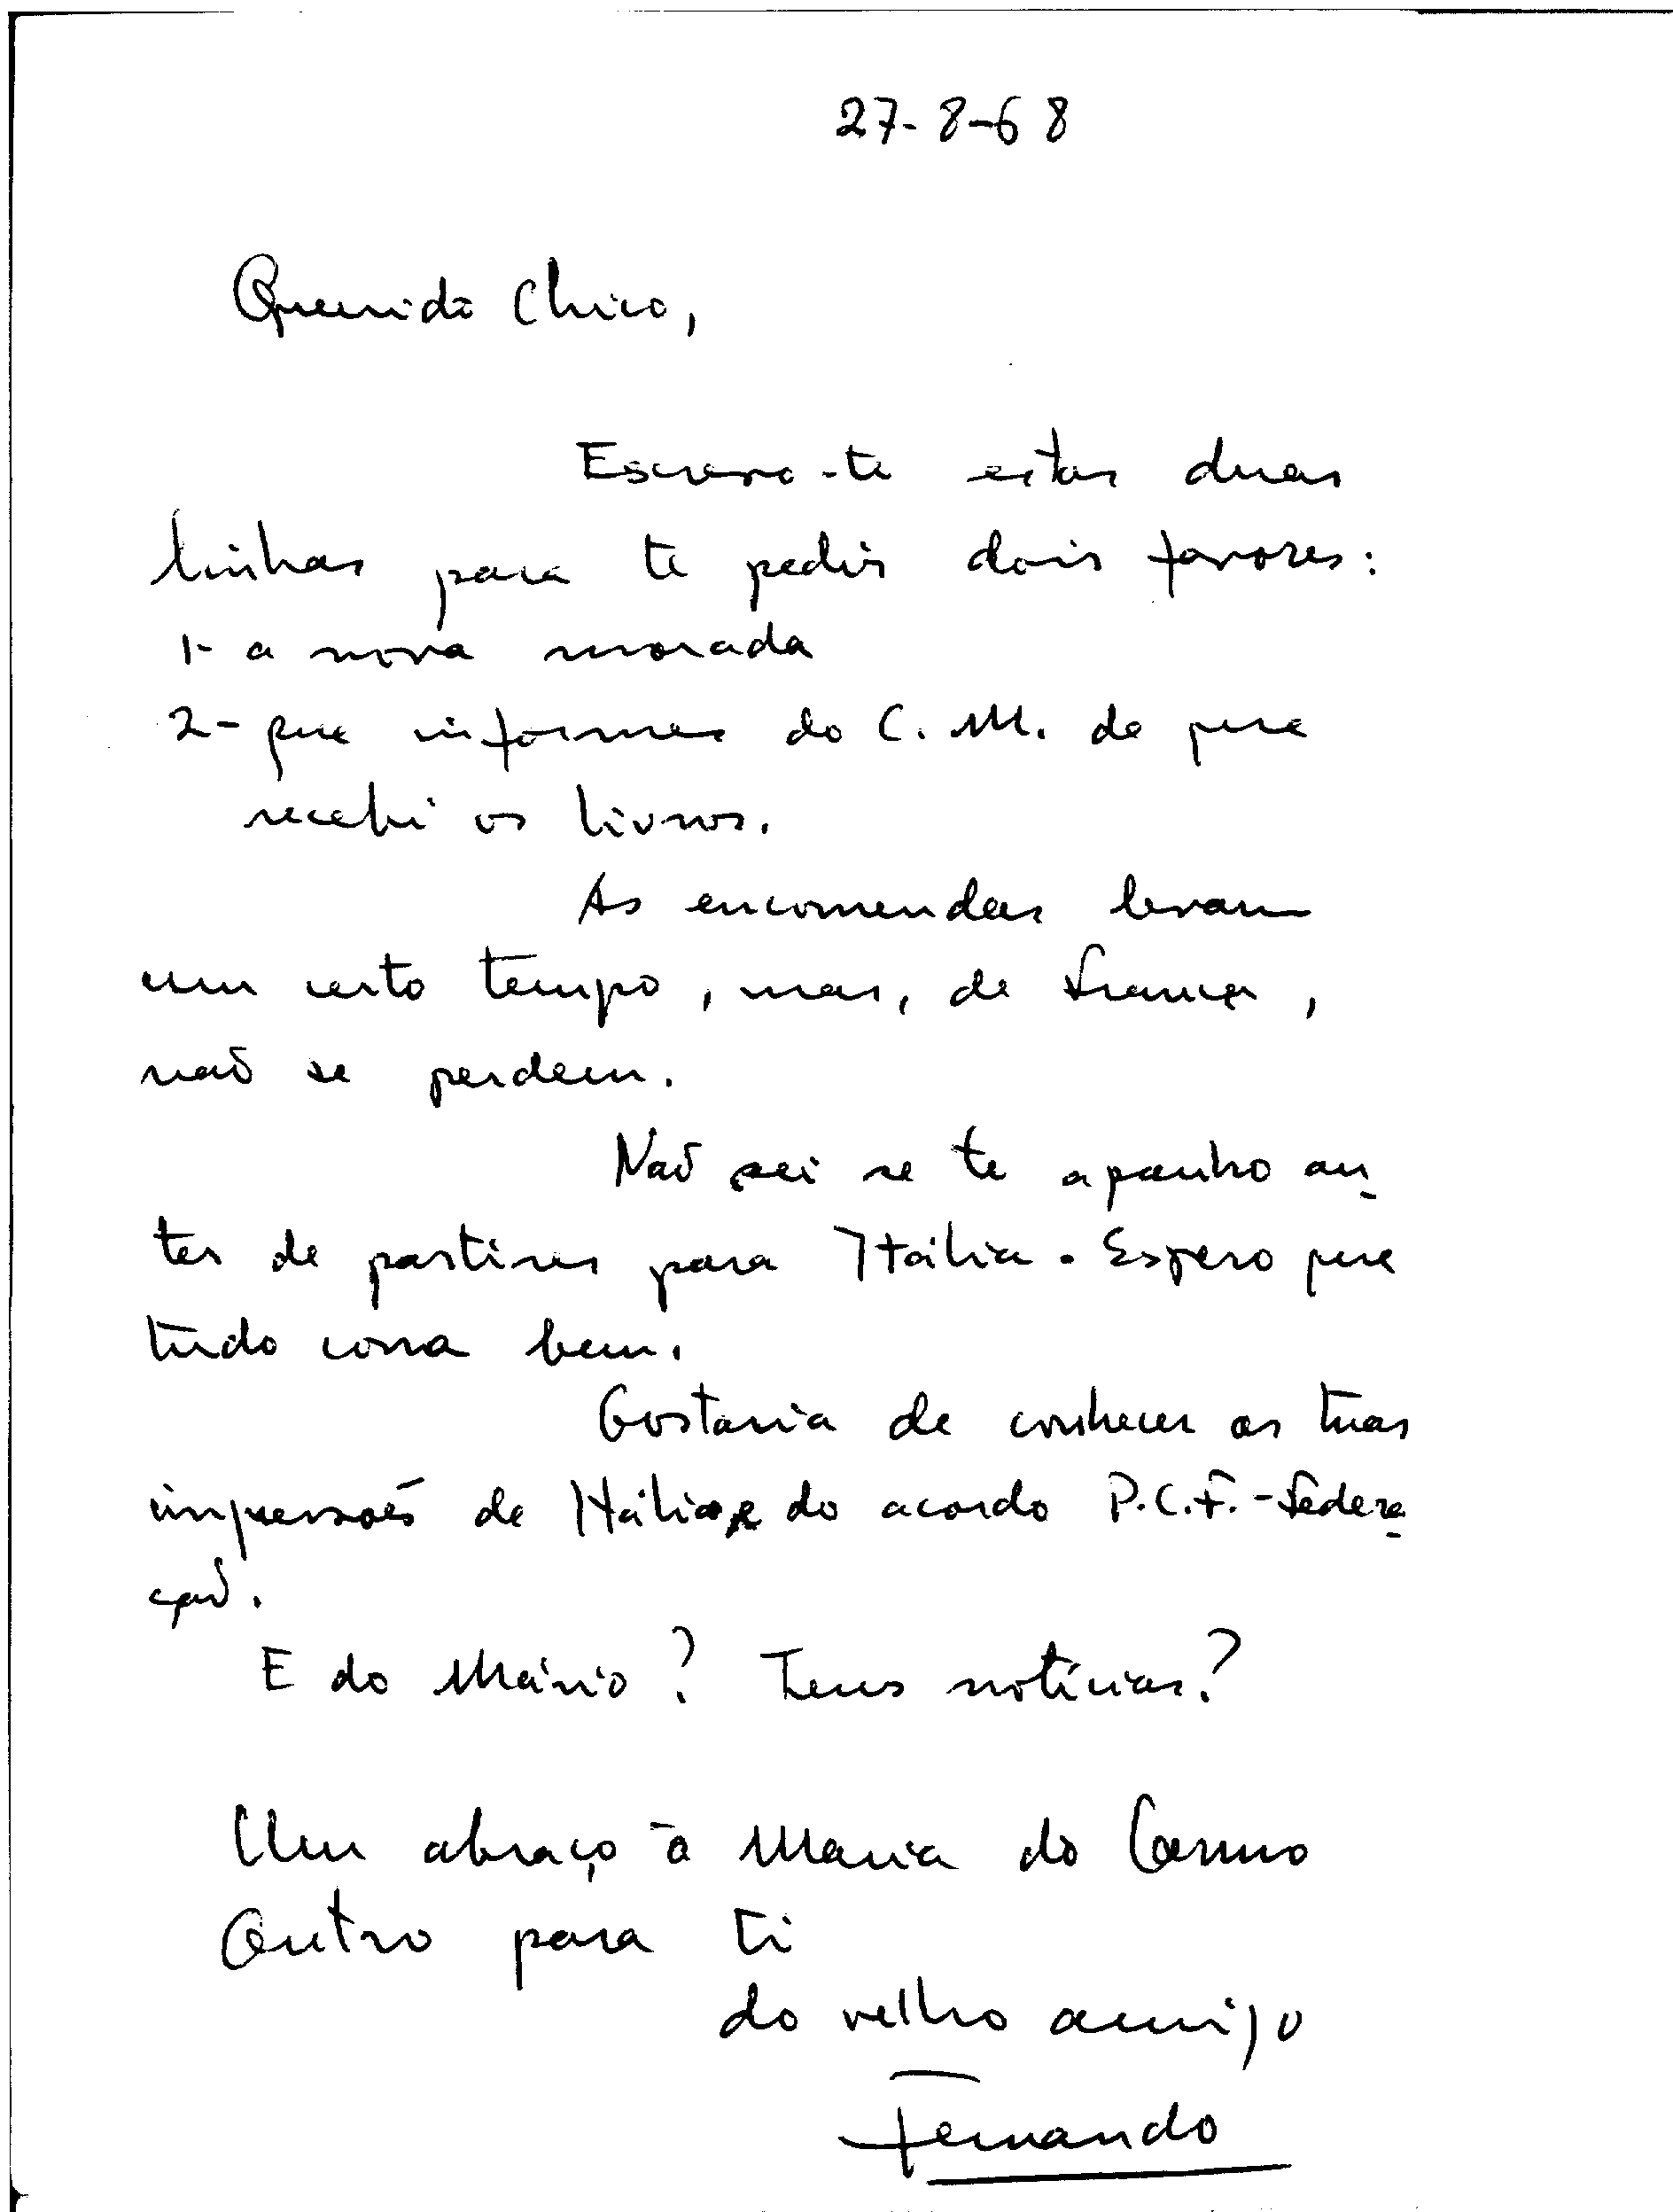 27-8-68
Querido Chico,
Escrevo-te estas duas
linhas para te pedir dois favores:
1- a nova morada
2- que informes do C. M. de que
recebi os livros.
As encomendas levam
um certo tempo, mas, de França,
não se perdem.
Não sei se te apanho an-
tes de partires para Itália. Espero que
tudo corra bem.
Gostaria de conhecer as tuas
impressões de Itália e do acordo P.C.F.-Federa-
ção.
E do Mário? Tens notícias?
Um abraço à Maria do Carmo
Outro para ti
do velho amigo
Fernando